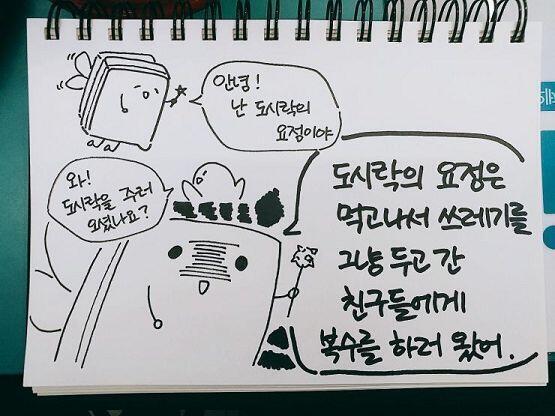 안녕!
난 도시락의
요정이야
와!
도시락을 주러
오셨나요?
도시락의 요정은
먹고나서 쓰레기를
그냥 두고 간
친구들에게
복수를 하러 왔어.